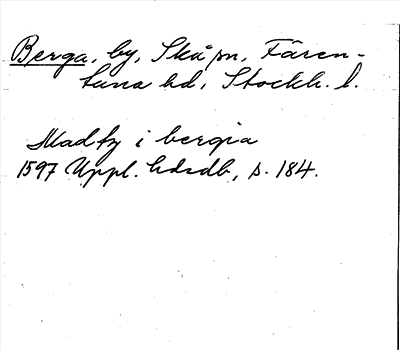 Berga, by, Skå sn, Fären-
tuna hd, Stockh. l.
Madtz i bergia
1597 Uppl. hdrdb, s. 184.